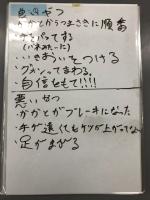 良いやつ
・かかとからつまさきに順番
・手をパーする
(バネみたいに)
・いきおいをつける
・グッソってまわる。
・自信をもて!!!!
悪いやつ
・かかとがブレーキになった
・手が遠くてもケツが上がってない
・足がまがる